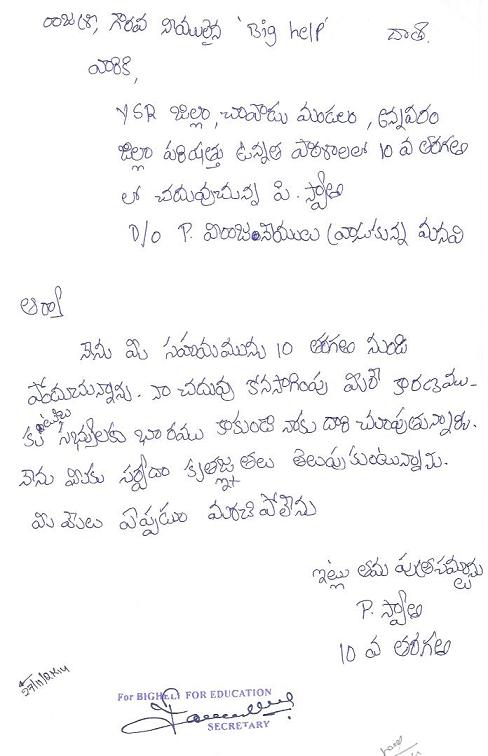 గౌరవ నీయులైన 'Big help' దాత.
వారికి,
YSR జిల్లా, చాపాడు మండలం, అన్నవరం
జిల్లా పరిషత్తు ఉన్నత పాఠశాలలో 10 వ తరగతి
లో చదువుచున్న పి. స్వాతి
D/o P. చిరంజీవులు వ్రాసుకున్న మనవి
ఆర్యా
నేను మీ సహాయమును 10 తరగతి నుండి
పొందుచున్నాను. నా చదువు కొనసాగింపు మీరే కారణము.
భారము కాకుండా నాకు దారి చూపుతున్నారు.
నేను మీకు సర్వదా కృతజ్ఞతలు తెలుపుకుంటున్నాను.
మీ మేలు ఎప్పుడు మరచి పోలేను
ఇట్లు తమ
P. స్వాతి
10 వ తరగతి
For BIGHELP FOR EDUCATION
SECRETARY